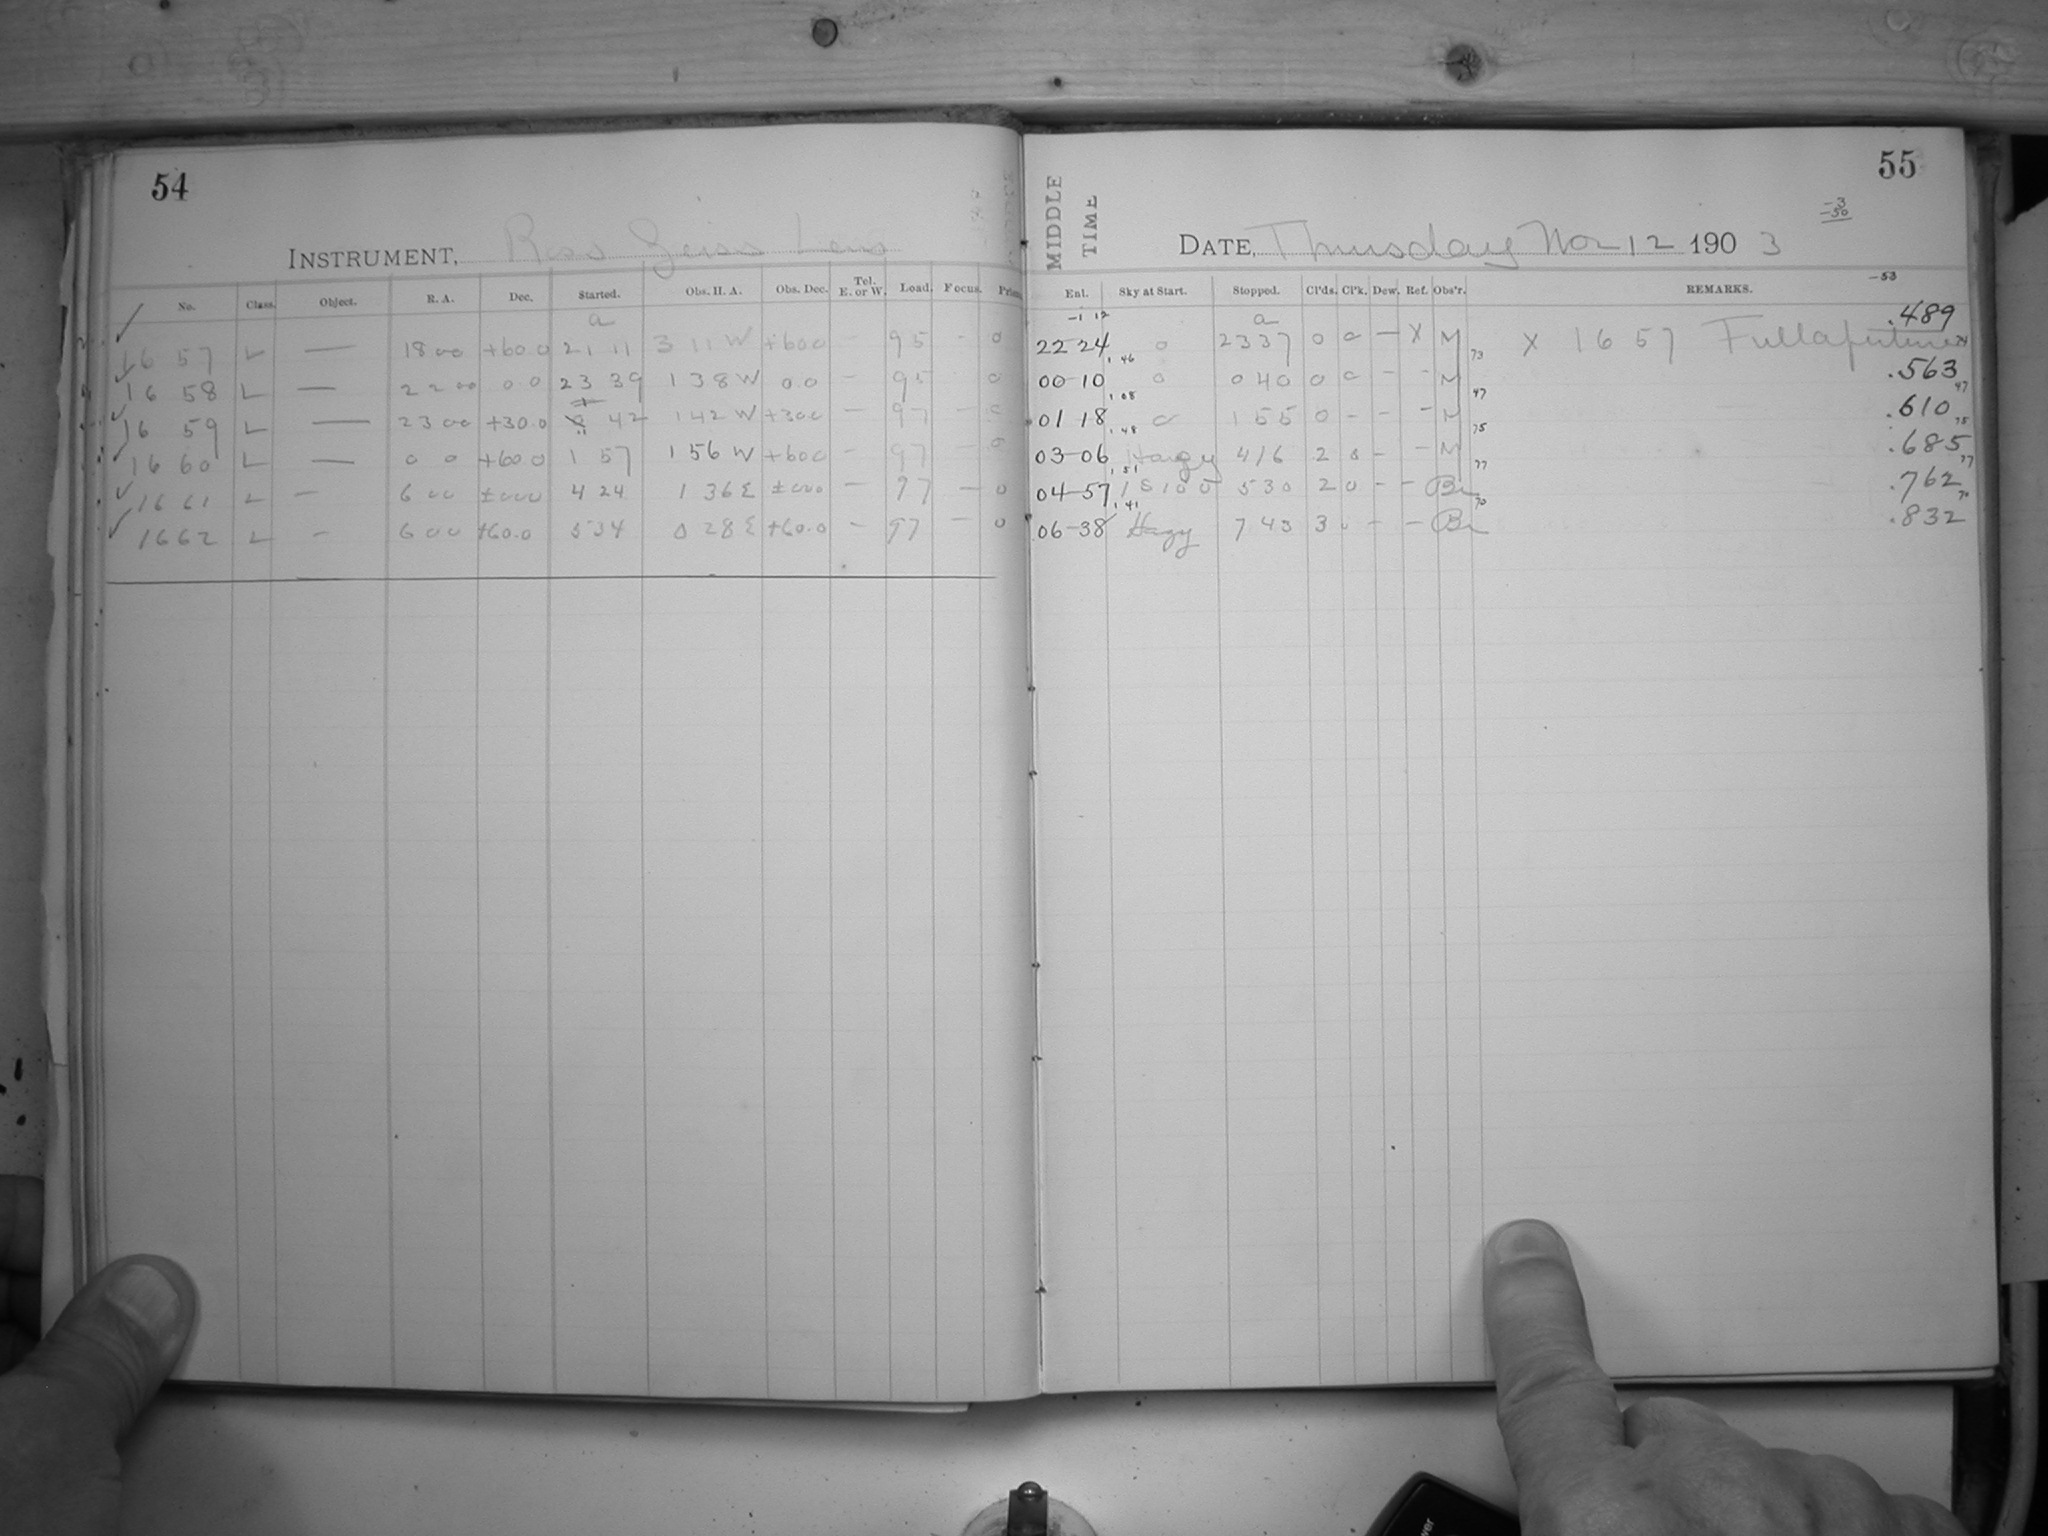 54
INSTRUMENT, Ross Zeiss Lens
No. Class. Object. R. A. Dec. Started. Obs. H. A. Obs. Dec. Tel. E. or W. Load. Focus.
a
16 57 L — 18 00 +60 0 21 11 3 11 W +60 0 – 95 - 0
16 58 L — 22 00 0.0 23 39 1 38 W 0.0 – 95 0
16 59 L — 23 00 +30.0 42 1 42 W +30 0 – 97 – 0
16 60 L — 0 0 +60 0 1 57 1 56 W +60 0 – 97 – 0
1661 L – 6 00 4 24 1 36 E – 97 – 0
1662 L – 6 00 +60.0 5 34 0 28 E +60.0 – 97 – 0
55
MIDDLE TIME
-3
-50
DATE, Thursday Nov 12 1903
-53
Enl. Sky at Start. Stopped. Cl'ds. Cl'k. Dew. Ref. Obs'r. REMARKS.
-1 12 a
22-24 0 23 37 0 0 — X M X 1657 Full aperture .489
1.46 73 74
00-10 0 0 40 0 0 - - M .563
1.08 47 47
01-18 0 1 55 0 - - - M .610
1.48 75 75
03-06 Hazy 4 16 2 0 - - M .685
1 51 77 77
04-57 5 30 2 0 - - Br .762
1.41 70 70
06-38 Hazy 7 43 3 - - Br .832